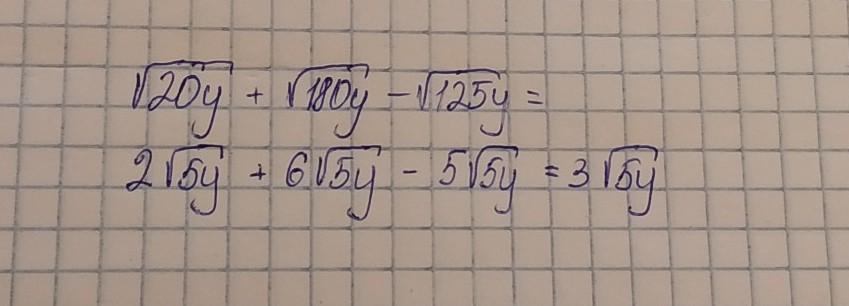 √20y + √180y - √125y =
2√5y + 6√5y - 5√5y = 3√5y